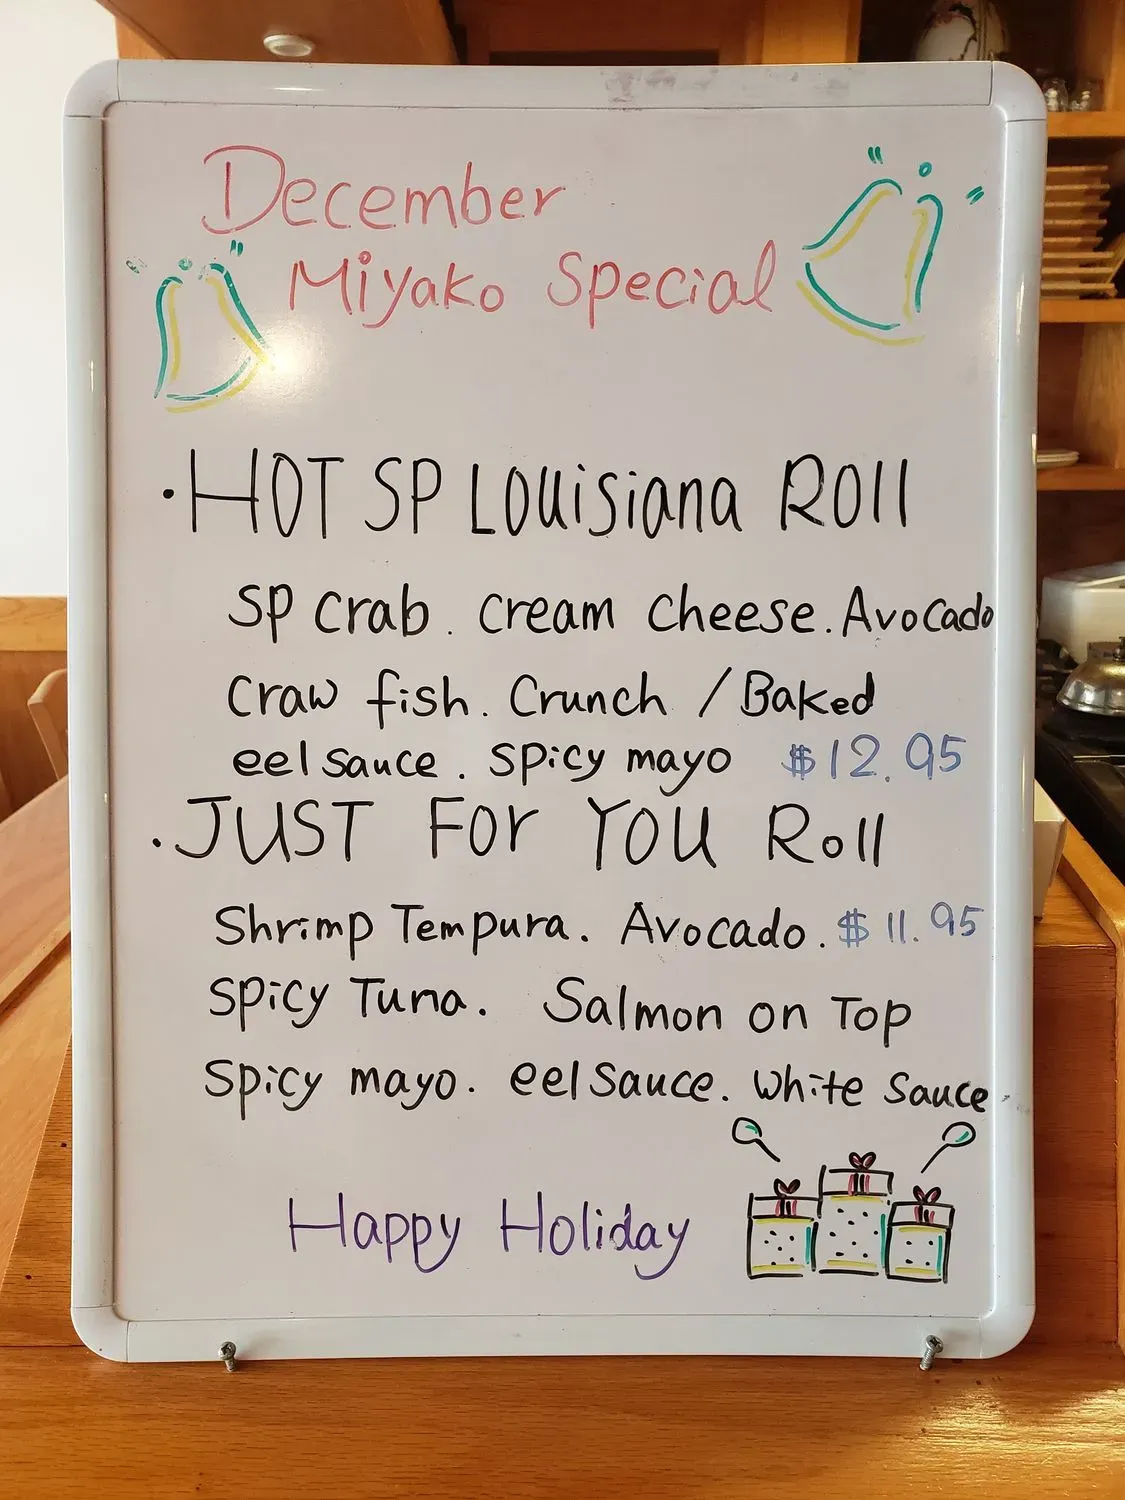 December
Miyako Special
· HOT SP Louisiana Roll
SP Crab. Cream Cheese. Avocado
Craw fish. Crunch / Baked
eel sauce. Spicy mayo $12.95
· JUST FOR YOU Roll
Shrimp Tempura. Avocado. $11.95
Spicy Tuna. Salmon on Top
Spicy mayo. eel Sauce. White Sauce
Happy Holiday